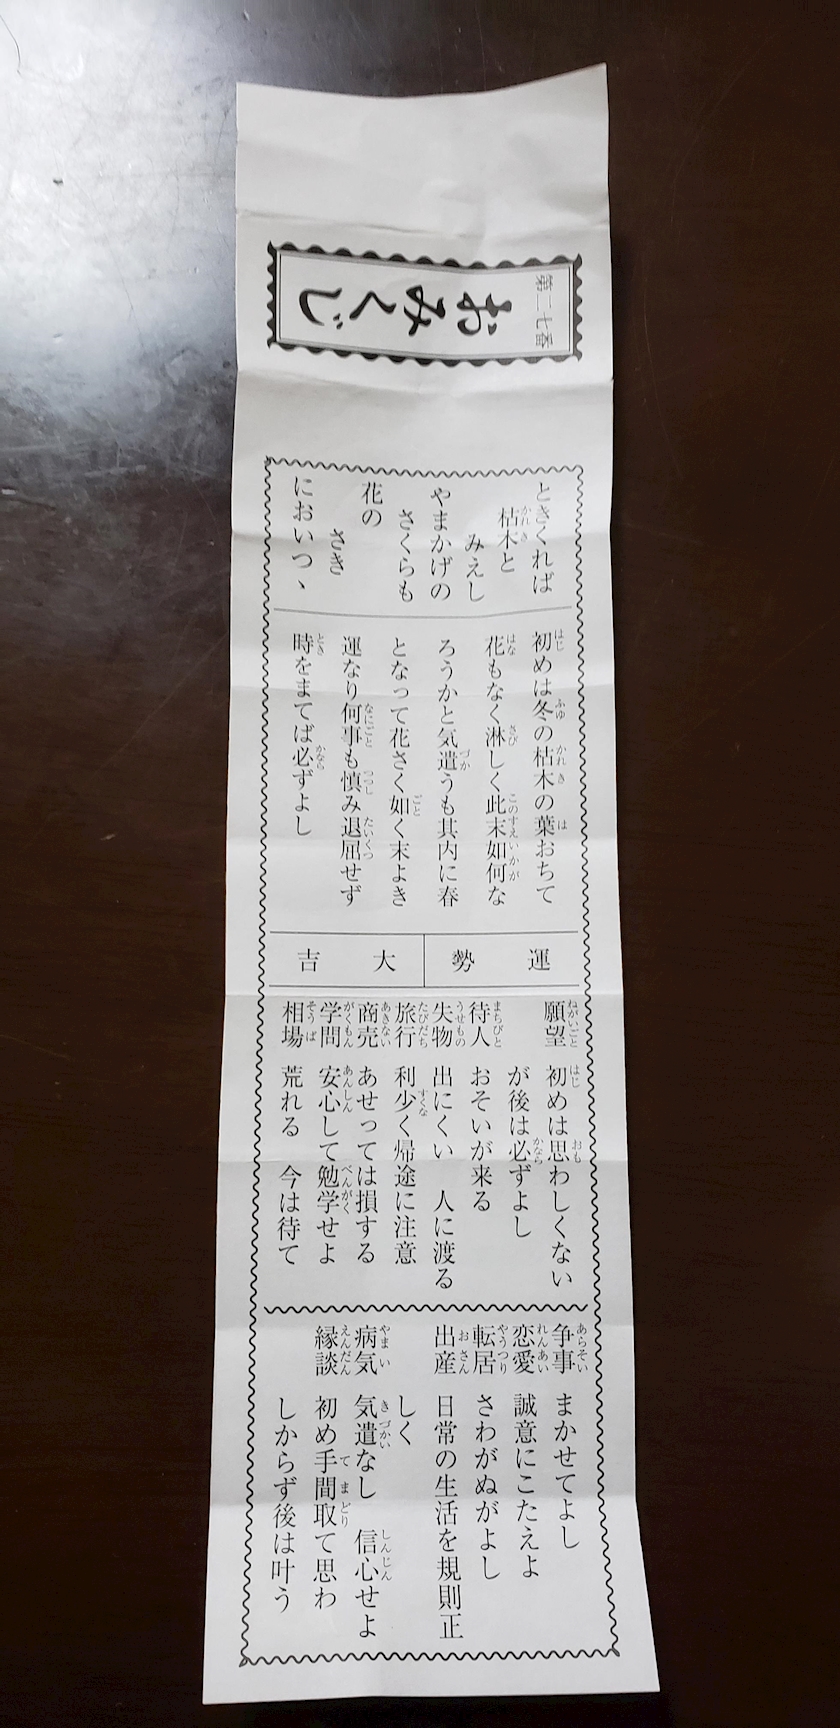 第二七番
おみくじ
ときくれば
枯木と
みえし
やまかげの
さくらも
花の
さき
においつヽ
初めは冬の枯木の葉おちて
花もなく淋しく此末如何な
ろうかと気遣うも其内に春
となって花さく如く末よき
運なり何事も慎み退屈せず
時をまてば必ずよし
運勢 大吉
願望 初めは思わしくない
が後は必ずよし
待人 おそいが来る
失物 出にくい 人に渡る
旅行 利少く帰途に注意
商売 あせっては損する
学問 安心して勉学せよ
相場 荒れる 今は待て
争事 まかせてよし
恋愛 誠意にこたえよ
転居 さわがぬがよし
出産 日常の生活を規則正
しく
病気 気遣なし 信心せよ
縁談 初め手間取て思わ
しからず後は叶う